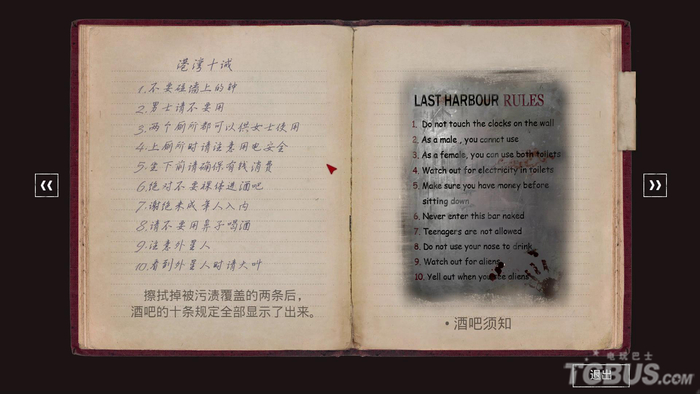 港湾十诫
1.不要碰墙上的钟
2.男士请不要用
3.两个厕所都可以供女士使用
4.上厕所时请注意用电安全
5.坐下前请确保有钱消费
6.绝对不要裸体进酒吧
7.谢绝未成年人入内
8.请不要用鼻子喝酒
9.注意外星人
10.看到外星人时请大叫
擦拭掉被污渍覆盖的两条后，
酒吧的十条规定全部显示了出来。
LAST HARBOUR RULES
1. Do not touch the clocks on the wall
2. As a male , you cannot use
3. As a female, you can use both toilets
4. Watch out for electricity in toilets
5. Make sure you have money before
sitting down
6. Never enter this bar naked
7. Teenagers are not allowed
8. Do not use your nose to drink
9. Watch out for aliens
10. Yell out when you see aliens
• 酒吧须知
退出
电玩巴士
TGBUS.COM